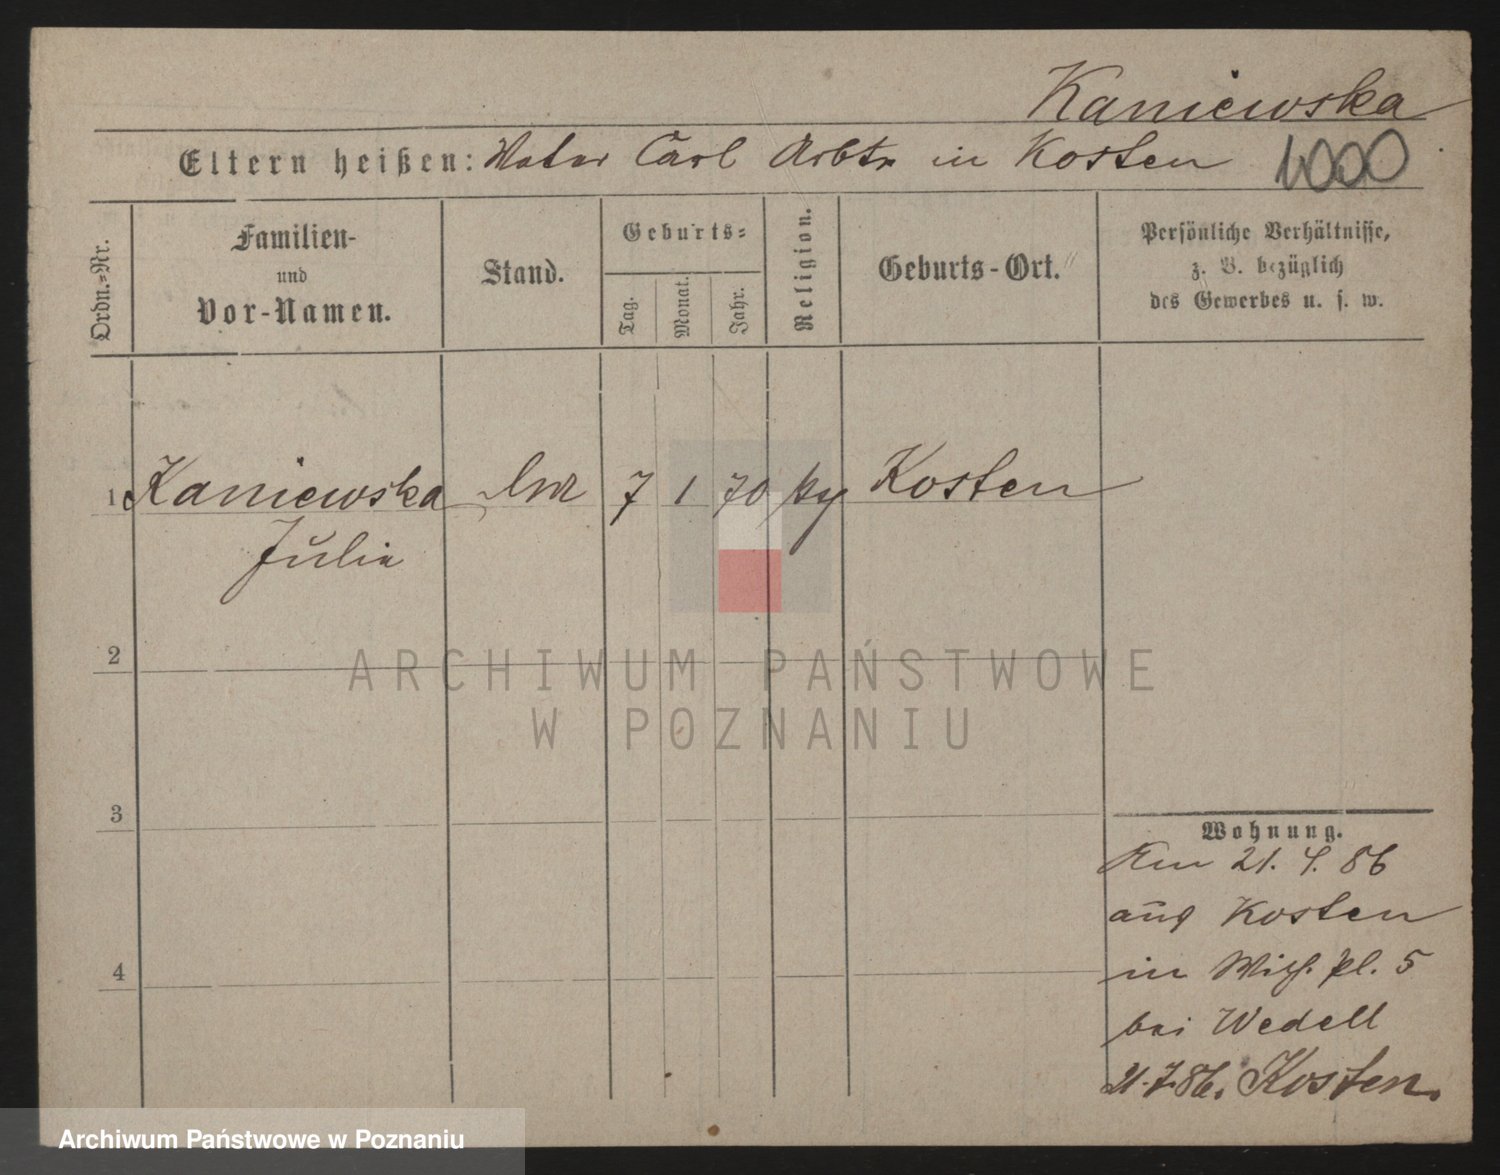 Kaniewska
Eltern heißen: Vater Carl Arbtr in Kosten 1000
Ordn.-Nr.
Familien-
und
Vor-Namen.
Stand.
Geburts-
Tag.
Monat.
Jahr.
Religion.
Geburts-Ort.
Persönliche Verhältnisse,
z. B. bezüglich
des Gewerbes u. s. w.
1 Kaniewska 7 1 70 Kosten
Julie
2
3
4
ARCHIWUM PAŃSTWOWE
W POZNANIU
Wohnung.
21. 4. 86
aus Kosten
in pl. 5
bei Wedell
21.7.86. Kosten.
Archiwum Państwowe w Poznaniu